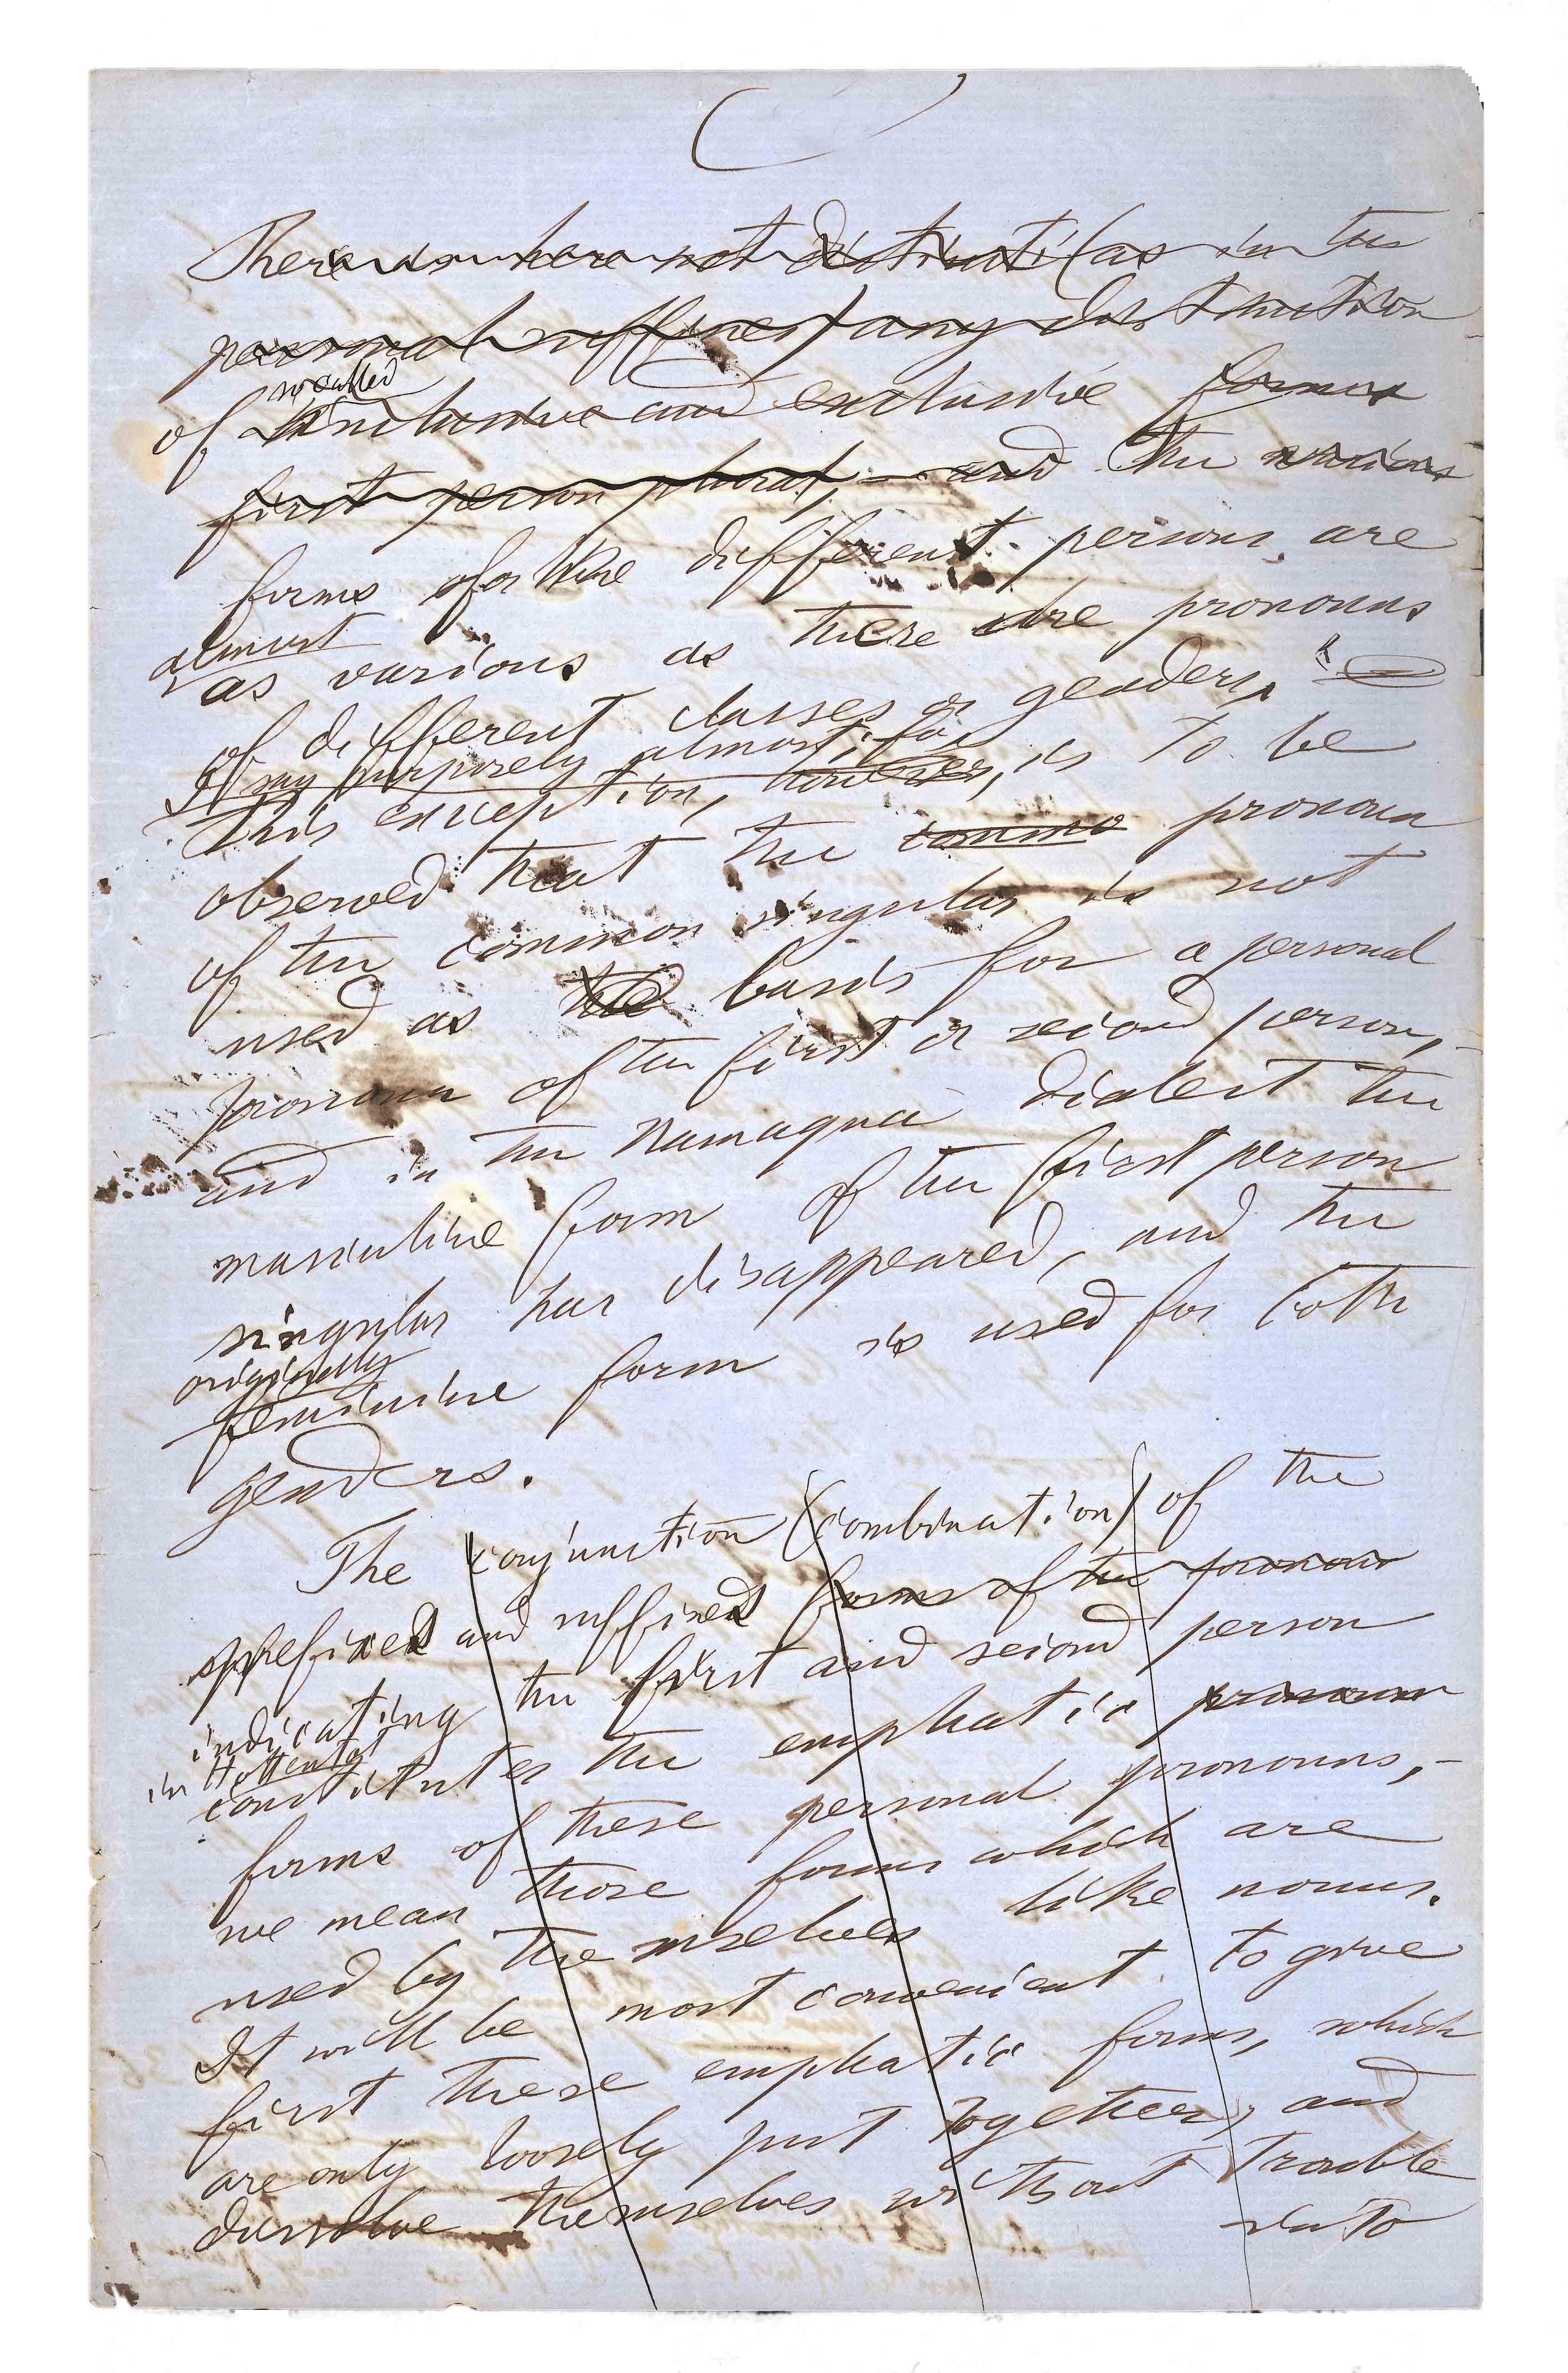 There is here not distinct (as in the
personal suffixes) any distinction
so called
of inclusive and exclusive forms
first person plural, – and the various
forms for the different persons are
almost
as various as there are pronouns
of different classes or genders.
I say purposely almost; for
this exception, however, is to be
observed that the commo pronoun
of the common singular is not
used as the basis for a personal
pronoun of the first or second person, –
and in the Namaqua dialect the
masculine form of the first person
singular has disappeared, and the
originally
feminine form is used for both
genders.
The conjunction (combination) of the
prefixed and suffixed forms of the pronoun
indicating the first and second person
in Hottentot
constitutes the emphatic pronoun
forms of these personal pronouns, –
we mean those forms which are
used by themselves like nouns.
It will be most convenient to give
first these emphatic forms, which
are only loosely put together, and
dissolve themselves without trouble
into